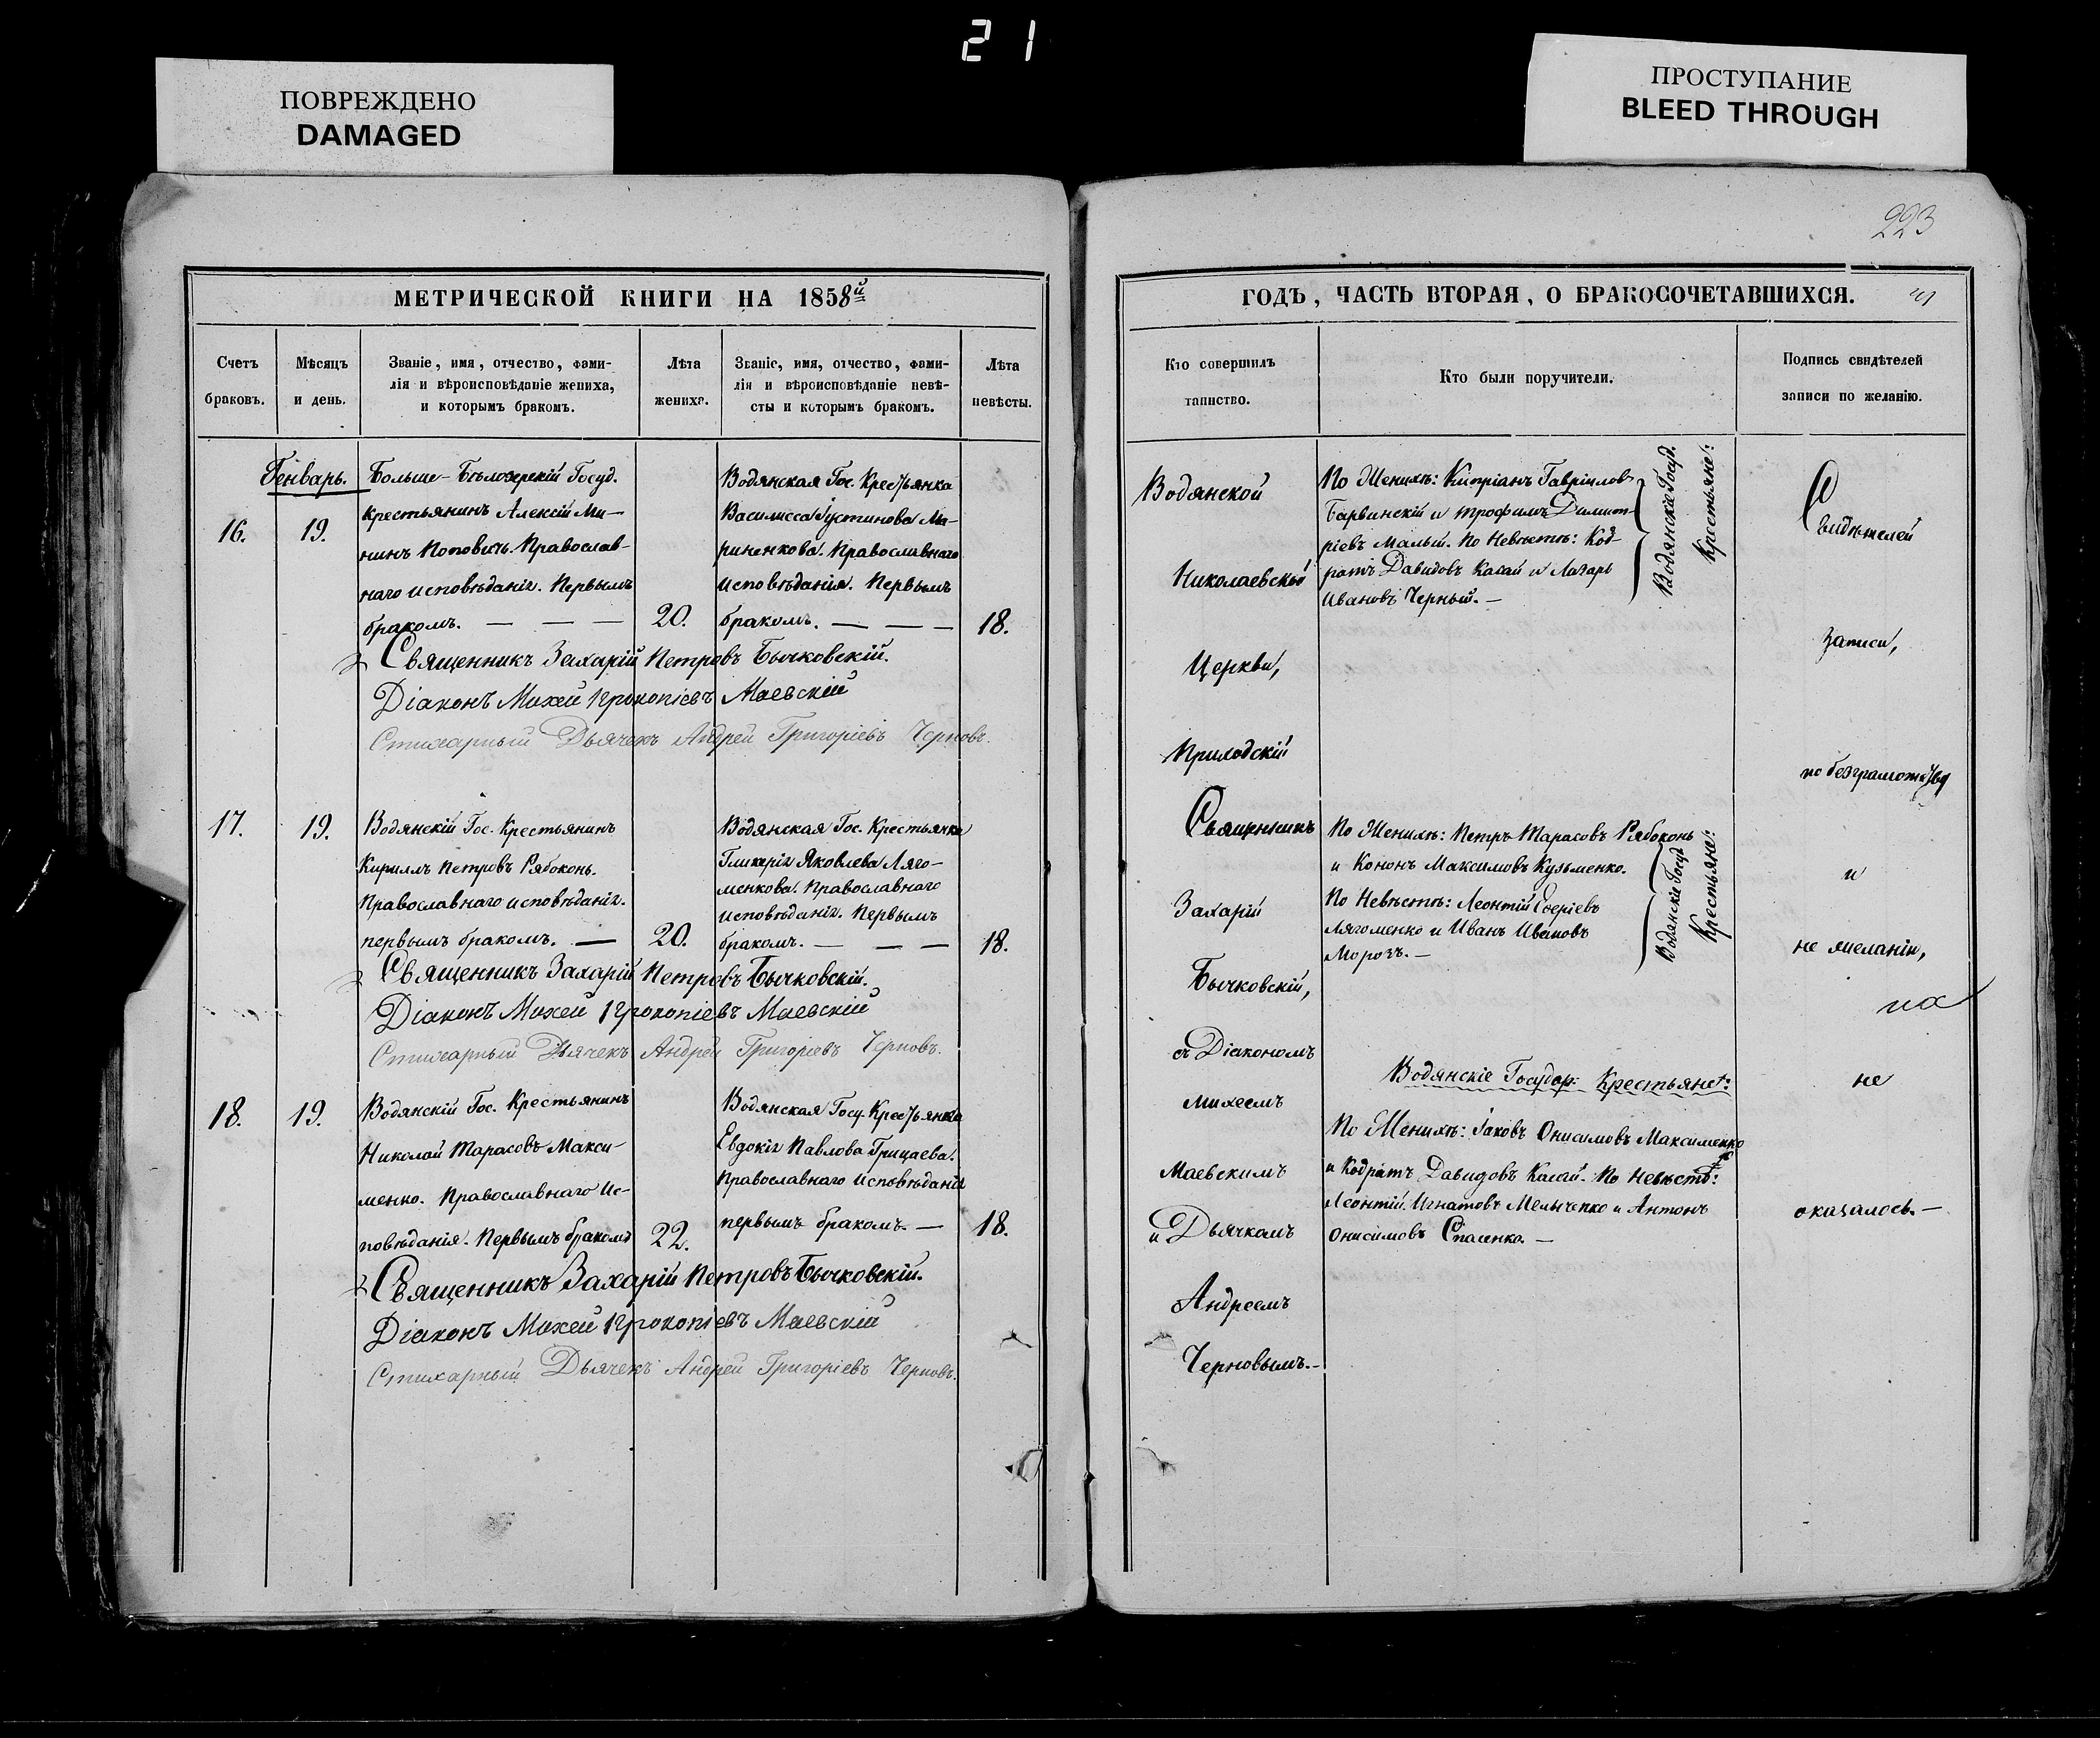 21
ПОВРЕЖДЕНО
DAMAGED
ПРОСТУПАНИЕ
BLEED THROUGH
223
МЕТРИЧЕСКОЙ КНИГИ НА 1858й
Счетъ
браковъ.
Мѣсяцъ
и день.
Званіе, имя, отчество, фами-
лія и вѣроисповѣданіе жениха,
и которымъ бракомъ.
Лѣта
жениха.
Званіе, имя, отчество, фами-
лія и вѣроисповѣданіе невѣ-
сты и которымъ бракомъ.
Лѣта
невѣсты.
Генварь.
16.
19.
Больше-Бѣлозерскій Госуд.
крестьянинъ Алексій Ми-
нинъ Поповичъ. Православ-
наго исповѣданія. Первымъ
бракомъ. — — —
20.
Водянская Гос. Крестьянка
Василисса Іустинова Ма-
риненкова. Православнаго
исповѣданія. Первымъ
бракомъ. — — —
18.
Священникъ Захарій Петровъ Бычковскій.
Діаконъ Михей Прокопіевъ Маевскій
Стихарный Дьячекъ Андрей Григоріевъ Черновъ.
17.
19.
Водянскій Гос. Крестьянинъ
Кириллъ Петровъ Рябоконь.
Православнаго исповѣданія.
первымъ бракомъ. —
20.
Водянская Гос. Крестьянка
Гликерія Яковлева Ляго-
менкова. Православнаго
исповѣданія. Первымъ
бракомъ. — — —
18.
Священникъ Захарій Петровъ Бычковскій.
Діаконъ Михей Прокопіевъ Маевскій
Стихарный Дьячекъ Андрей Григоріевъ Черновъ.
18.
19.
Водянскій Гос. Крестьянинъ
Николай Тарасовъ Макси-
менко. Православнаго Ис-
повѣданія. Первымъ бракомъ
22.
Водянская Госу. Крестьянка
Евдокія Павлова Грицаева.
Православнаго Исповѣданія
первымъ бракомъ. —
18.
Священникъ Захарій Петровъ Бычковскій.
Діаконъ Михей Прокопіевъ Маевскій
Стихарный Дьячекъ Андрей Григоріевъ Черновъ.
ГОДЪ, ЧАСТЬ ВТОРАЯ, О БРАКОСОЧЕТАВШИХСЯ.
Кто совершилъ
таинство.
Кто были поручители.
Подпись свидѣтелей
записи по желанію.
Водянской
Николаевской
Церкви,
Приходскій
Священникъ
Захарій
Бычковскій,
съ Діакономъ
Михеемъ
Маевскимъ
и Дьячкомъ
Андреемъ
Черновымъ.-
По Женихѣ: Кипріанъ Гавріиловъ
Барвинскій и Трофимъ Димит-
ріевъ Малый. По Невѣстѣ: Код-
ратъ Давидовъ Касай и Лазарь
Ивановъ Черный. —
Водянскіе Госуд.
Крестьяне:
По Женихѣ: Петръ Тарасовъ Рябоконь
и Кононъ Максимовъ Кузьменко.
По Невѣстѣ: Леонтій
Лягоменко и Иванъ Ивановъ
Морозъ. —
Водянскіе Госуд
Крестьяне:
Водянскіе Государ: Крестьяне:
По Женихѣ: Іаковъ Онисимовъ Максименко
и Кодратъ Давидовъ Касай. По Невѣстѣ:
Леонтій Игнатовъ Мельченко и Антонъ
Онисимовъ Спасенко. —
Свидѣтелей
записи,
по безграмотству
и
не желанію,
на
не
оказалось. —